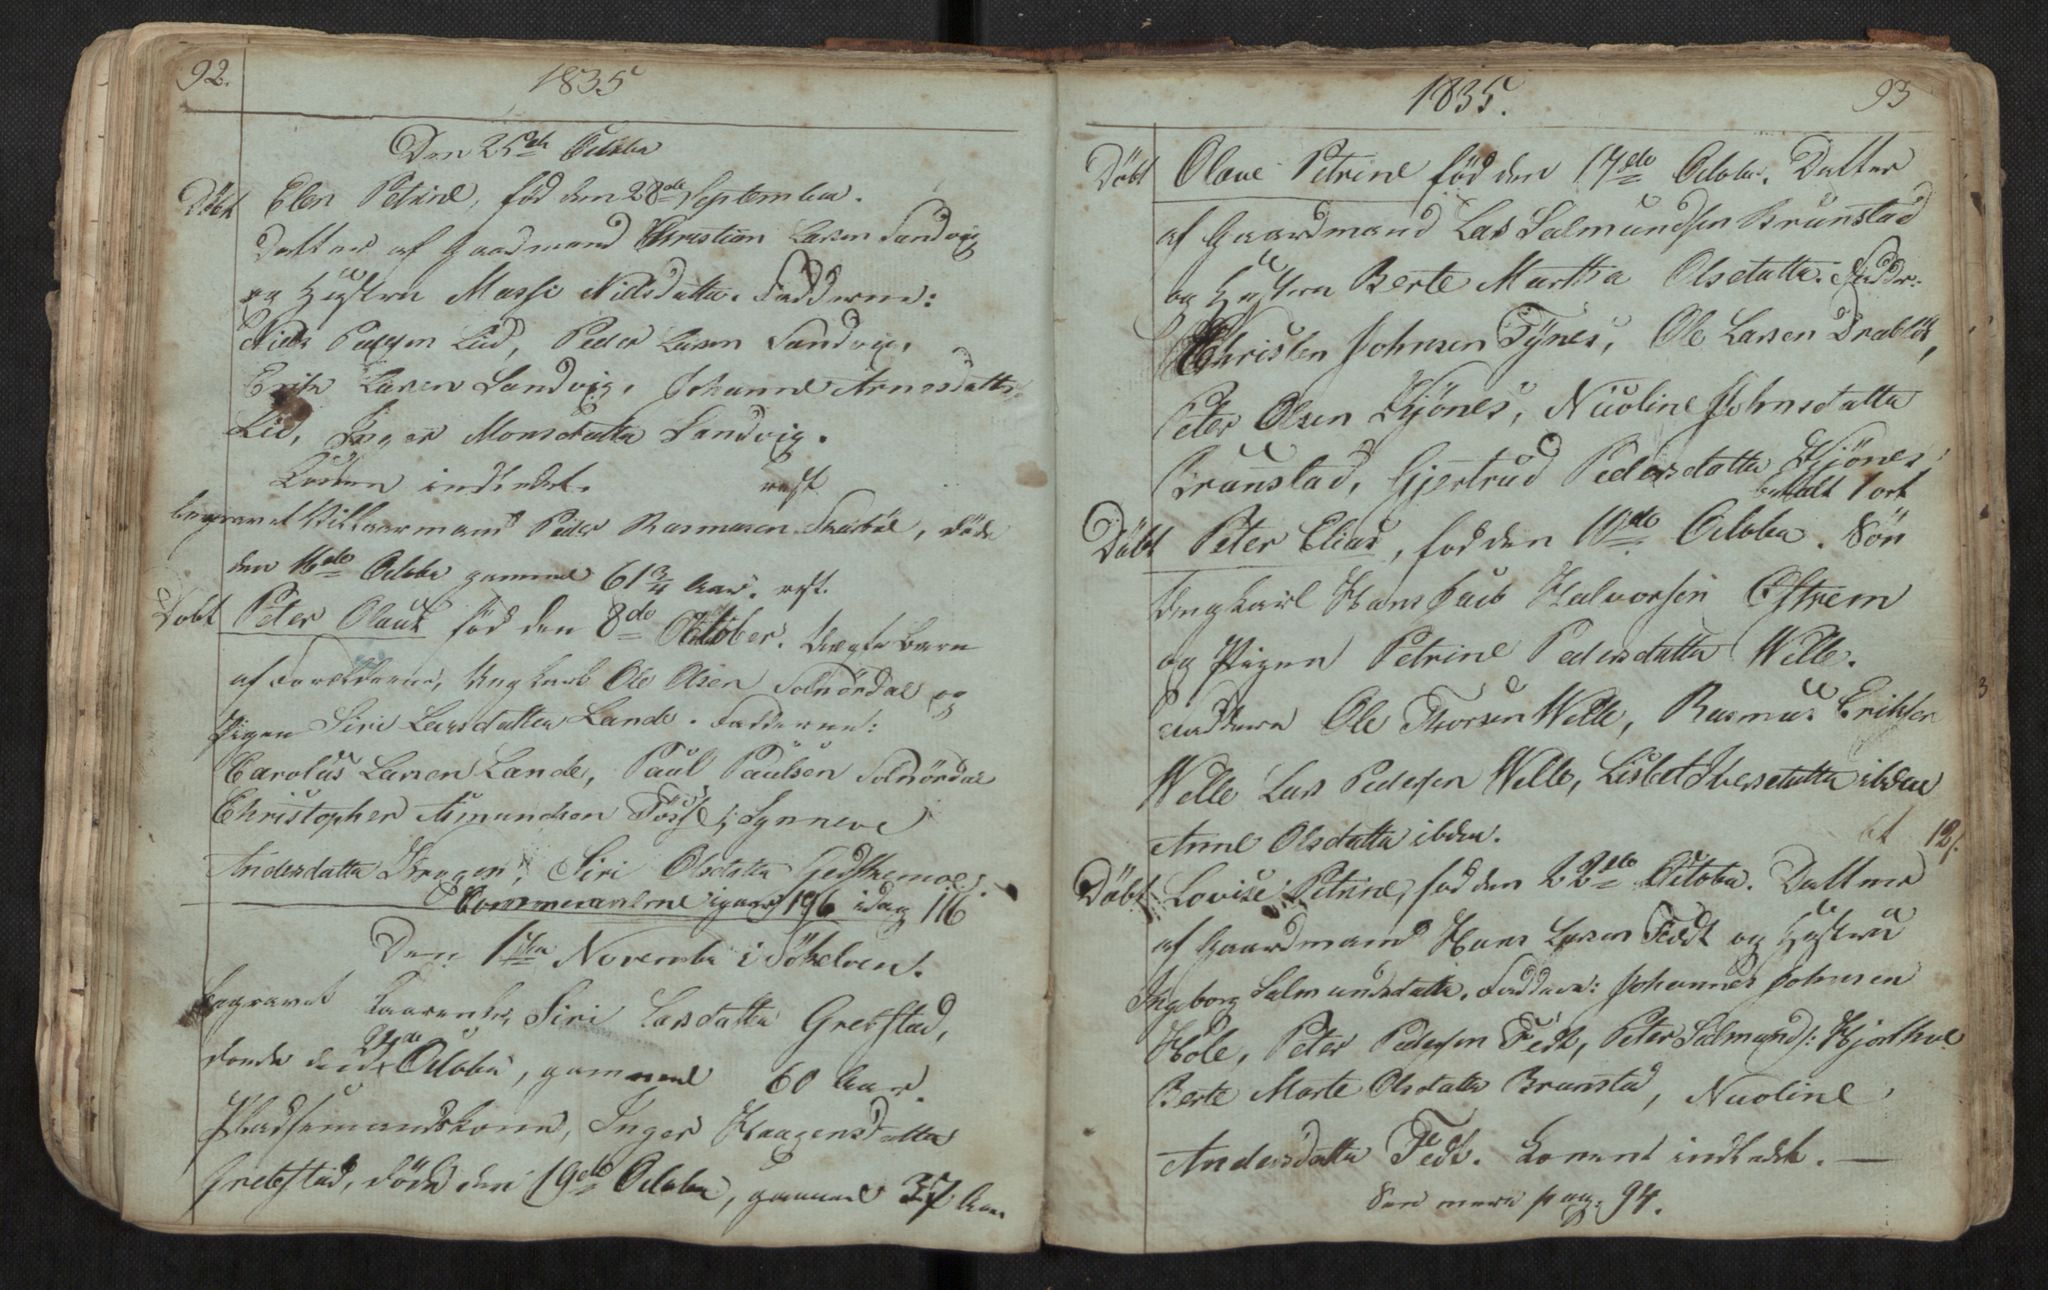 92.
1835
Den 25de Octobr
Döbt Elen Petrine, föd den 28de September.
Datter af Gaardmand Christian Larsen Sandvig
og Hustru Massi Nielsdatter. Fadderne:
Niels Lid, Peder Larsen Sandvig,
Erik Larsen Sandvig, Johanne Arnesdatter
Lid, Inger Monsdatter Sandvig.
Kirken indledt. rest
begravet Killaarmand Peder Rasmusen döde
den 16de Octobr gammel 61 3/4 Aar. rest.
Döbt Peter Olaus föd den 8de October. Uægte Barn
af Forældrene, Ungkarl Ole Olsen Solnördal og
Pigen Siri Larsdatter Lande. Fadderne:
Carolus Larsen Lande, Paul Paulsen Solnördal
Christopher Amundsen Fosse, Synneve
Andersdatter Krogen, Siri Olsdatter Gedskemoe.
Communicanterne igaar 196 idag 116
Den 1ste November i Söhelven.
begravet Siri Larsdatter Grebstad,
döde den Octobr, gammel 60 Aar.
Pladsemandskone, Inger Haagensdatter
Grebstad, döde den 19de Octobr, gammel 37 Aar.
1835.
93
Döbt Olave Petrine föd den 17de Octobr. Datter
af Gaardmand Lars Salmundsen Brunstad
og Hustru Berte Martha Olsdatter. Faddr:
Christen Johnsen Tynes, Ole Larsen Drabløs,
Peter Olsen Kjönes, Nicoline Johnsdatter
Brunstad, Gjertrud Pedersdatter Kjönes
betalt 1 ort
Döbt Peter Elias, föd den 10de Octobr. Sön
Ungkarl Hans Jacob Halvorsen Östrem
og Pigen Petrine Pedersdatter Welle.
Faddere Ole Thorsen Welle, Rasmus Eriksen
Welle Lars Pedersen Welle, Lisbet Iversdatter ibden
Anne Olsdatter ibden. bt 12/.
Döbt Lovise Petrine, föd den 22de Octobr. Datter
af Gaardmand Hans Larsen Fedt og Hustru
Ingborg Salmundsdatter. Faddere: Johannes Johnsen
Hole, Peter Pedersen Fedt, Peter Salmunds: Hjorthol
Berte Marte Olsdatter Brunstad, Nicoline
Andersdatter Fedt. Konen indledt. —
See mere pag: 94.
3